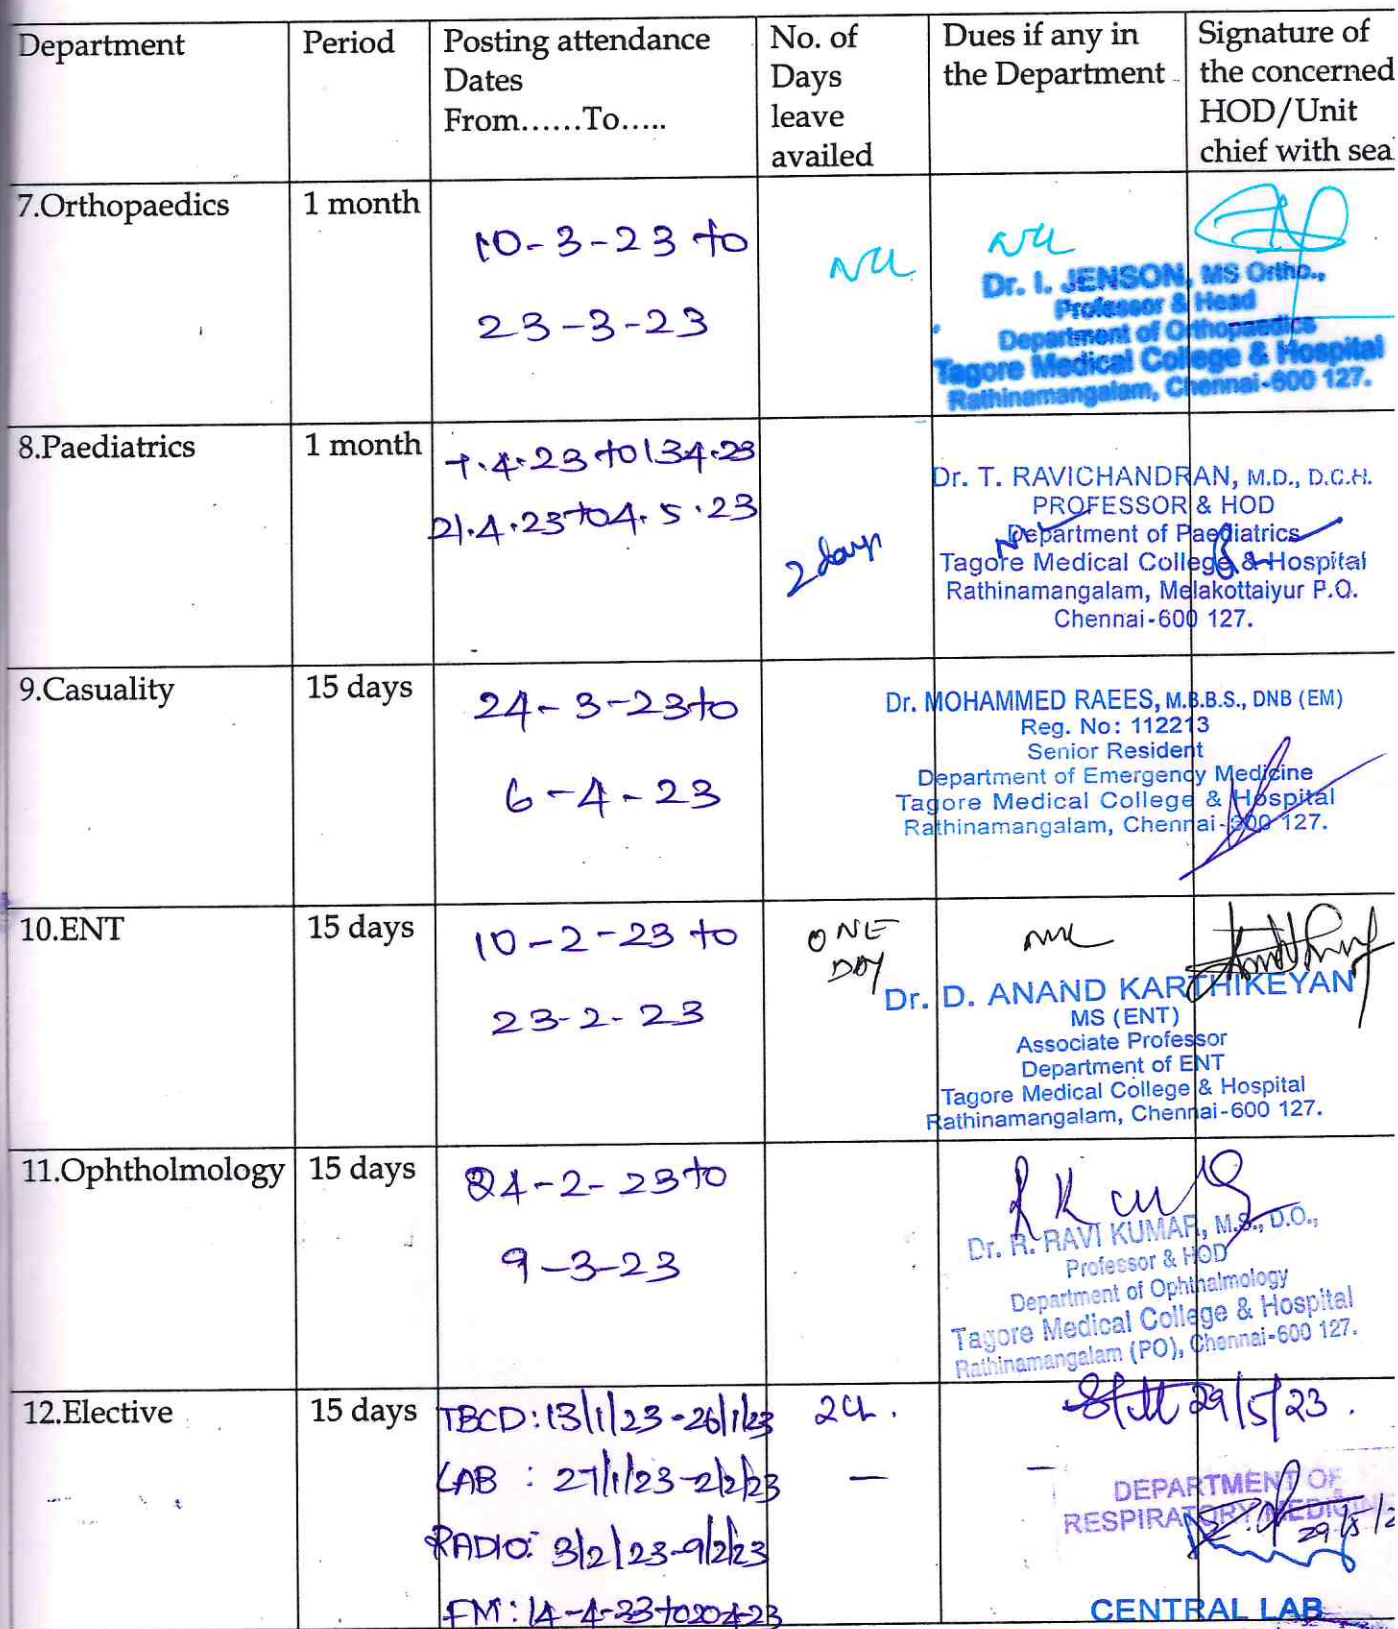 Department
Period
Posting attendance
Dates
From......To.....
No. of
Days
leave
availed
Dues if any in
the Department
Signature of
the concerned
HOD/Unit
chief with sea
7.Orthopaedics
1 month
10-3-23 to
23-3-23
Nil
Nil
Dr. I. JENSON, MS Ortho.,
Professor & Head
Department of Orthopaedics
Tagore Medical College & Hospital
Rathinamangalam, Chennai-600 127.
8.Paediatrics
1 month
7.4.23 to 13.4.23
21.4.23 to 4.5.23
2 days
Dr. T. RAVICHANDRAN, M.D., D.C.H.
PROFESSOR & HOD
Department of Paediatrics
Tagore Medical College & Hospital
Rathinamangalam, Melakottaiyur P.O.
Chennai-600 127.
9.Casuality
15 days
24-3-23 to
6-4-23
Dr. MOHAMMED RAEES, M.B.B.S., DNB (EM)
Reg. No: 112213
Senior Resident
Department of Emergency Medicine
Tagore Medical College & Hospital
Rathinamangalam, Chennai-600 127.
10.ENT
15 days
10-2-23 to
23-2-23
ONE
DAY
Nil
Dr. D. ANAND KARTHIKEYAN
MS (ENT)
Associate Professor
Department of ENT
Tagore Medical College & Hospital
Rathinamangalam, Chennai-600 127.
11.Ophtholmology
15 days
24-2-23 to
9-3-23
Dr. R. RAVI KUMAR, M.S., D.O.,
Professor & HOD
Department of Ophthalmology
Tagore Medical College & Hospital
Rathinamangalam (PO), Chennai-600 127.
12.Elective
15 days
TBCD: 13/1/23-26/1/23
LAB : 27/1/23-2/2/23
RADIO: 3/2/23-9/2/23
FM: 14-4-23 to 20-4-23
2CL.
—
—
29/5/23.
DEPARTMENT OF
RESPIRATORY MEDICIN
29/5/2
CENTRAL LAB